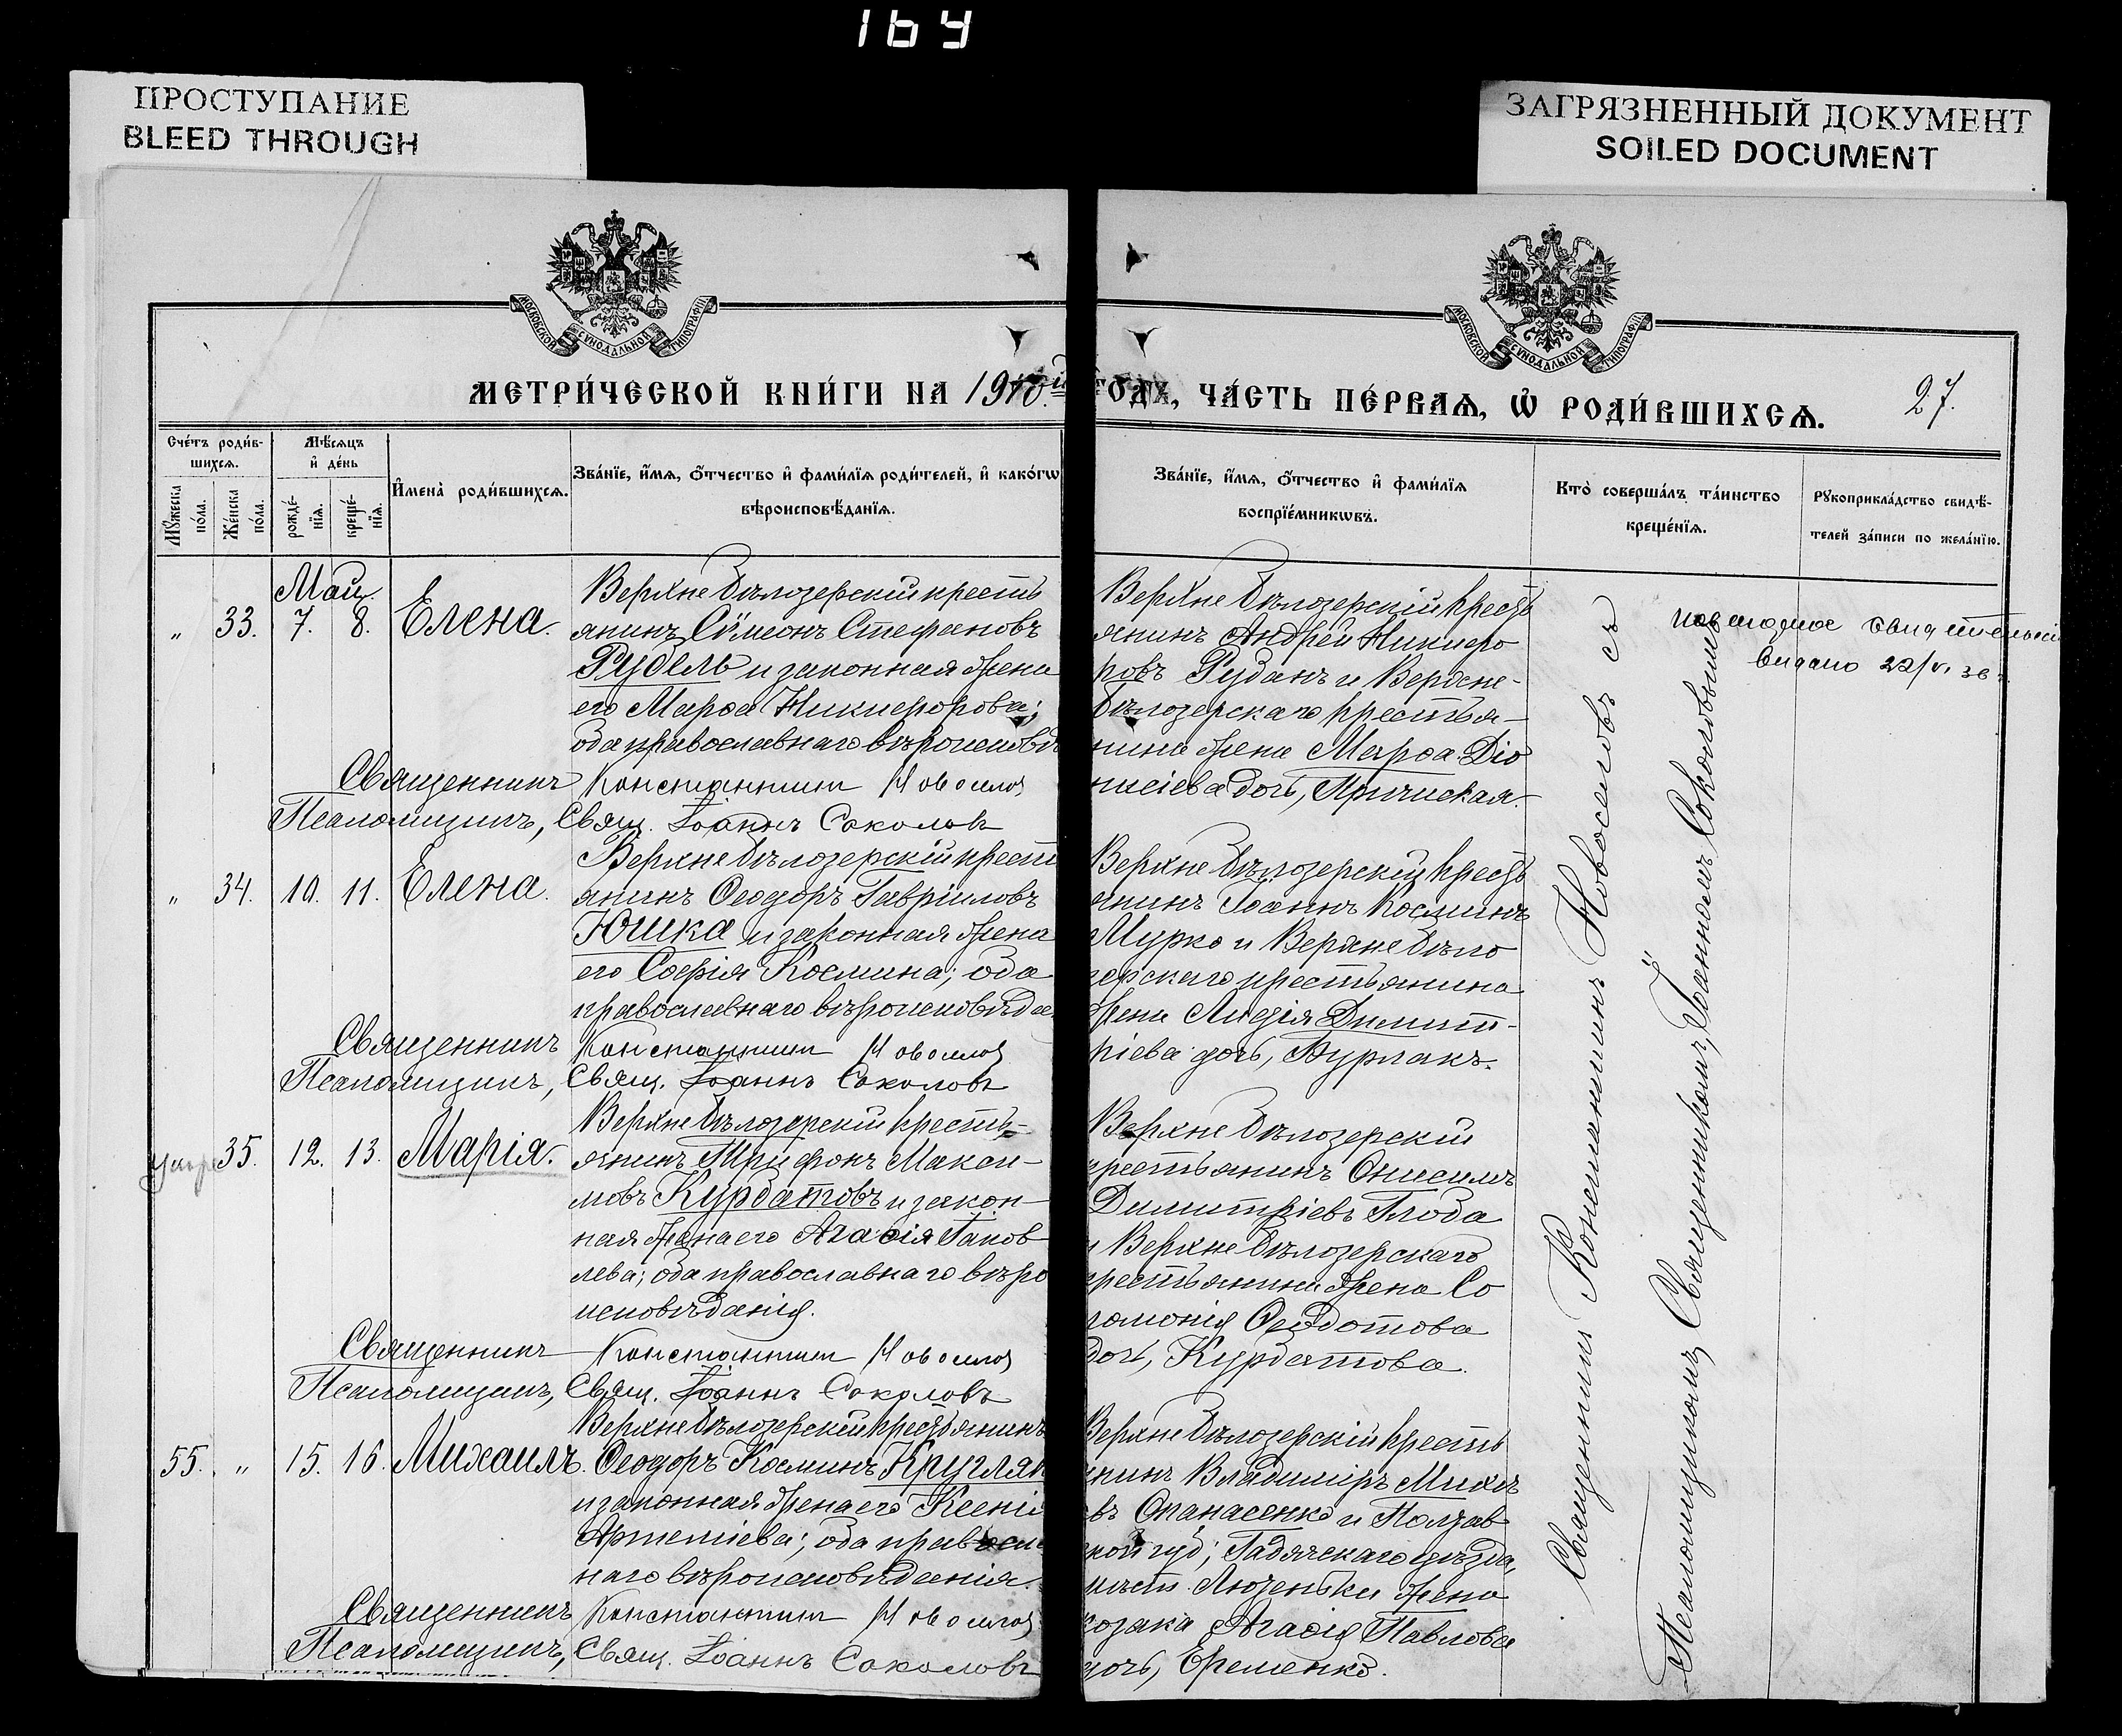 164
ПРОСТУПАНИЕ
BLEED THROUGH
ЗАГРЯЗНЕННЫЙ ДОКУМЕНТ
SOILED DOCUMENT
МОСКОВСКОЙ СѴНОДАЛЬНОЙ ТИПОГРАФІИ
МОСКОВСКОЙ СѴНОДАЛЬНОЙ ТИПОГРАФІИ
МЕТРИ́ЧЕСКОЙ КНИ́ГИ НА 1910й
ГОДЪ, ЧА́СТЬ ПЕ́РВАѦ, Ѡ҆ РОДИ́ВШИХСѦ.
27.
Сче́тъ роди́в-
шихсѧ.
Мꙋжеска по́ла.
Же́нска по́ла.
Мѣ́сѧцъ
и҆ де́нь
рожде́-
нїѧ.
креще́-
нїѧ.
И҆мена̀ роди́вшихсѧ.
Зва́нїе, и҆́мѧ, ѻ҆́тчество и҆ фами́лїѧ роди́телей, и҆ како́гѡ
вѣроисповѣ́данїѧ.
Зва́нїе, и҆́мѧ, ѻ҆́тчество и҆ фами́лїѧ
воспрїе́мникѡвъ.
Кто̀ соверша́лъ та́инство
креще́нїѧ.
Рꙋкоприкла́дство свидѣ́-
телей за́писи по жела́нїю.
Май.
„ 33. 7. 8. Елена.
Верхне Бѣлозерскій кресть
янинъ Сѵмеонъ Стефановъ
Рубель и законная жена
его Марѳа Никифорова;
оба православнаго вѣроисповѣд
Священникъ Константин Новосилов
Псаломщикъ, Свящ. Іоаннъ Соколовъ
Верхне Бѣлозерскій кресть
янинъ Андрей Никифо
ровъ Рудань и Верхне-
Бѣлозерскаго крестья-
нина жена Марѳа Діо
нисіева дочь,
„ 34. 10. 11. Елена.
Верхне Бѣлозерскій кресть
янинъ Ѳеодоръ Гавріиловъ
Юшка и законная жена
его Софія Космина; оба
православнаго вѣроисповѣдан
Священникъ Константин Новосилов
Псаломщикъ, Свящ. Іоаннъ Соколовъ
Верхне Бѣлозерскій кресть
янинъ Іоаннъ Косминъ
Мурко и Верхне Бѣло
зерскаго крестьянина
жена Лидія Димит-
ріева дочь, Бурлакъ.
35. 12. 13. Марія.
Верхне Бѣлозерскій кресть-
янинъ Трифонъ Макси-
мовъ Курбатовъ и закон-
ная жена его Агаѳія Іаков
лева; оба православнаго вѣро
исповѣданія.
Священникъ Константин Новосилов
Псаломщикъ, Свящ. Іоаннъ Соколовъ
Верхне Бѣлозерскій
крестьянинъ Онисимъ
Димитріевъ Глоба
и Верхне Бѣлозерскаго
крестьянина жена Со
ломонія Ѳеодотова
дочь, Курбатова.
55. „ 15. 16. Михаилъ.
Верхне Бѣлозерскій крестьянинъ
Ѳеодоръ Косминъ Кругляк
и законная жена его Ксенія
Артеміева; оба правосла
наго вѣроисповѣданія.
Священникъ Константин Новосилов
Псаломщикъ, Свящ. Іоаннъ Соколовъ
Верхне Бѣлозерскій кресть
янинъ Владиміръ Миха
въ Опанасенко и Полтав
ской губ; Гадячскаго уѣзда,
мѣст. Люženьки жена
козака Агаѳія Павлова
дочь, Еременко.
Священникъ Константинъ Новоселовъ съ
Псаломщикомъ, Священникомъ, Іоанномъ Соколовымъ
видано 22/VI 36 г.